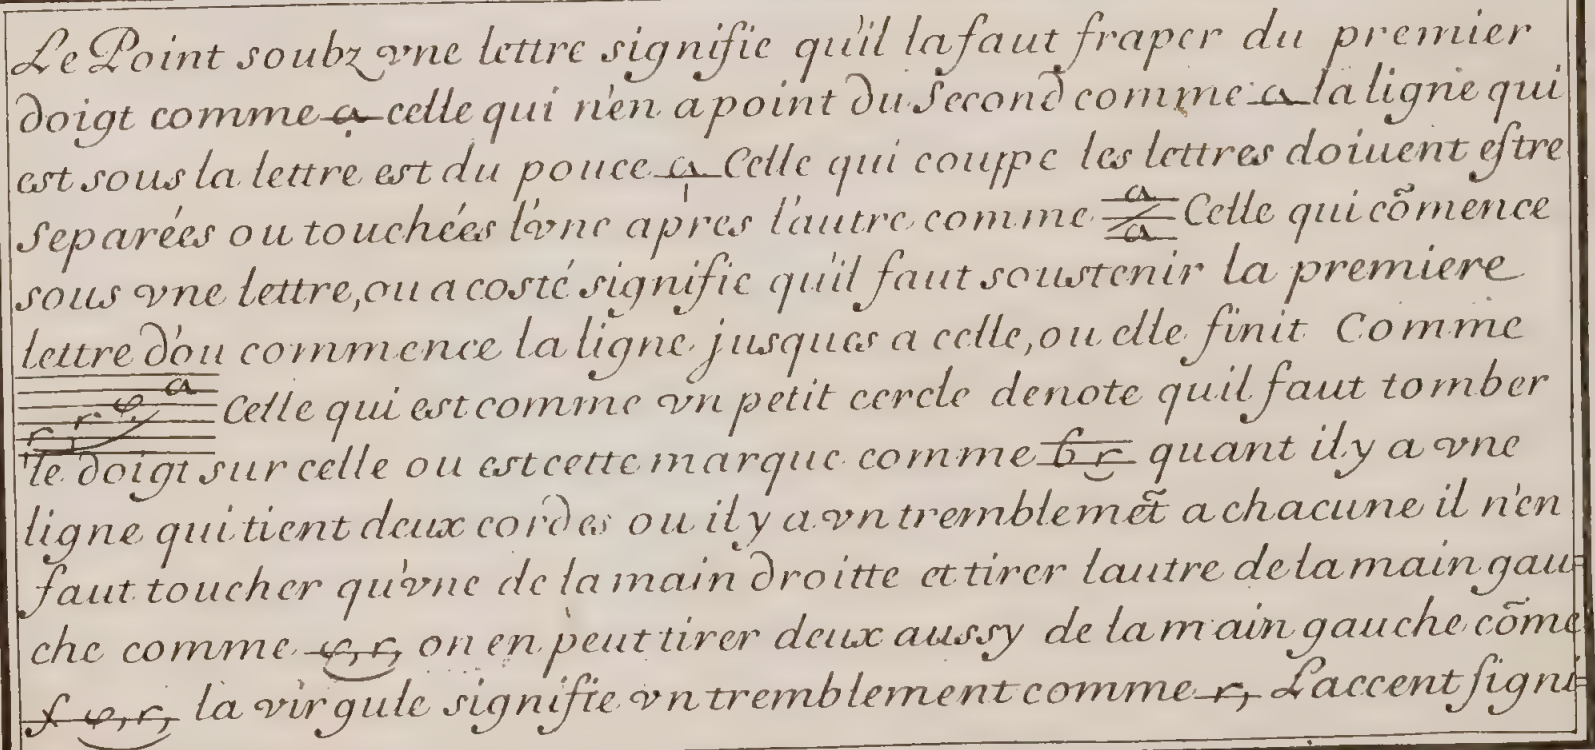 Le Point soubz vne lettre signifie qu'il la faut fraper du premier
doigt comme a celle qui n'en a point du Second comme a la ligne qui
est sous la lettre est du pouce a Celle qui couppe les lettres doiuent estre
separées ou touchées l'vne apres l'autre comme a a Celle qui cõmence
sous vne lettre, ou a costé signifie qu'il faut soustenir la premiere
lettre d'ou commence la ligne jusques a celle, ou elle finit Comme
r r e a Celle qui est comme vn petit cercle denote quil faut tomber
le doigt sur celle ou est cette marque comme b r quant il y a vne
ligne qui tient deux cordes ou il y a vn tremblemẽt a chacune il n'en
faut toucher qu'vne de la main droitte et tirer lautre de la main gau=
che comme e, r, on en peut tirer deux aussy de la main gauche cõme
f e, r, la virgule signifie vn tremblement comme r, L'accent signi=